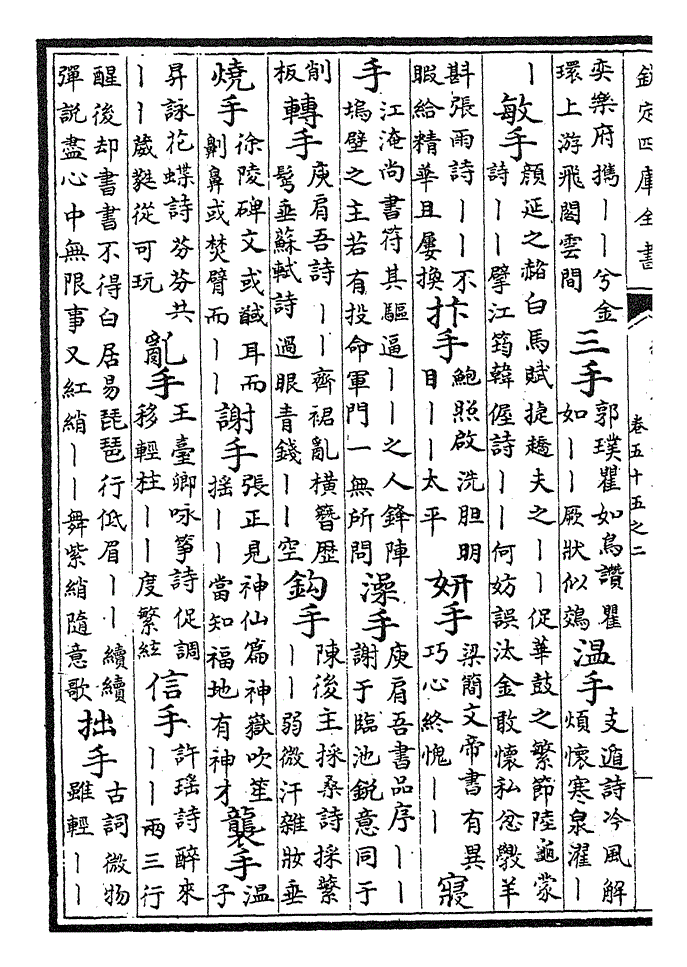 欽定四庫全書
卷五十五之二
奕樂府攜||兮金
環上游飛閣雲間
三手
郭璞瞿如鳥讚瞿
如||厥狀似鵁
温手
支遁詩冷風解
煩懷寒泉濯|
|
敏手
顔延之赭白馬賦捷趫夫之||促華鼓之繁節陸龜蒙
詩||擘江筠韓偓詩||何妨誤汰金敢懷私忿斆羊
斟張雨詩||不
暇給精華且屢換
抃手
鮑照啟洗胆明
目||太平
妍手
梁簡文帝書有異
巧心終愧||
寢
手
江淹尚書符其驅逼||之人鋒陣
塢壁之主若有投命軍門一無所問
澡手
庾肩吾書品序||
謝于臨池鋭意同于
削
板
轉手
庾肩吾詩||齊裾亂橫簪歴
鬂垂蘇軾詩過眼青錢||空
鈎手
陳後主採桑詩採蘩
||弱微汗雜妝垂
燒手
徐陵碑文或馘耳而
劓鼻或焚臂而||
謝手
張正見神仙篇神嶽吹笙
揺||當知福地有神才
襲手
温
子
昇詠花蝶詩芬芬共
||葳蕤從可玩
亂手
王臺卿咏箏詩促調
移輕柱||度繁絃
信手
許瑶詩醉來
||兩三行
醒後却書書不得白居易琵琶行低眉||續續
彈説盡心中無限事又紅綃||舞紫綃隨意歌
拙手
古詞微物
雖輕||